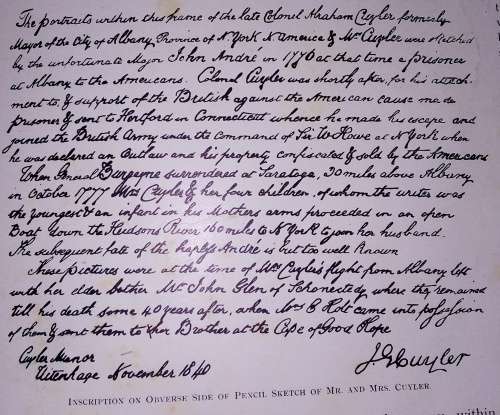 The portraits within this frame of the late Colonel Abraham Cuyler formerly
Mayor of the City of Albany Province of N York N America & Mrs Cuyler were sketched
by the unfortunate Major John André in 1776 at that time a prisoner
at Albany to the Americans. Colonel Cuyler was shortly after, for his attach-
ment to, & support of the British against the American cause made
prisoner & sent to Hertford in Connecticutt whence he made his escape and
joined the British Army under the Command of Sir W Howe at N York when
he was declared an Outlaw and his property confiscated & sold by the Americans
When General Burgoyne surrendered at Saratoga, 30 miles above Albany
in October 1777 Mrs Cuyler & her four children, of whom the writer was
the youngest & an infant in his Mothers arms proceeded in an open
Boat down the Hudsons River 160 miles to N York to join her husband.
The subsequent fate of the hapless André is but too well known
These pictures were at the time of Mrs Cuylers flight from Albany left
with her elder brother Mr John Glen of Schonectedy where they remained
till his death some 40 years after, when Mrs E Holt came into possession
of them & sent them to her Brother at the Cape of Good Hope
Cuyler Manor
Uitenhage November 1840
J G Cuyler
INSCRIPTION ON OBVERSE SIDE OF PENCIL SKETCH OF MR. AND MRS. CUYLER.
within